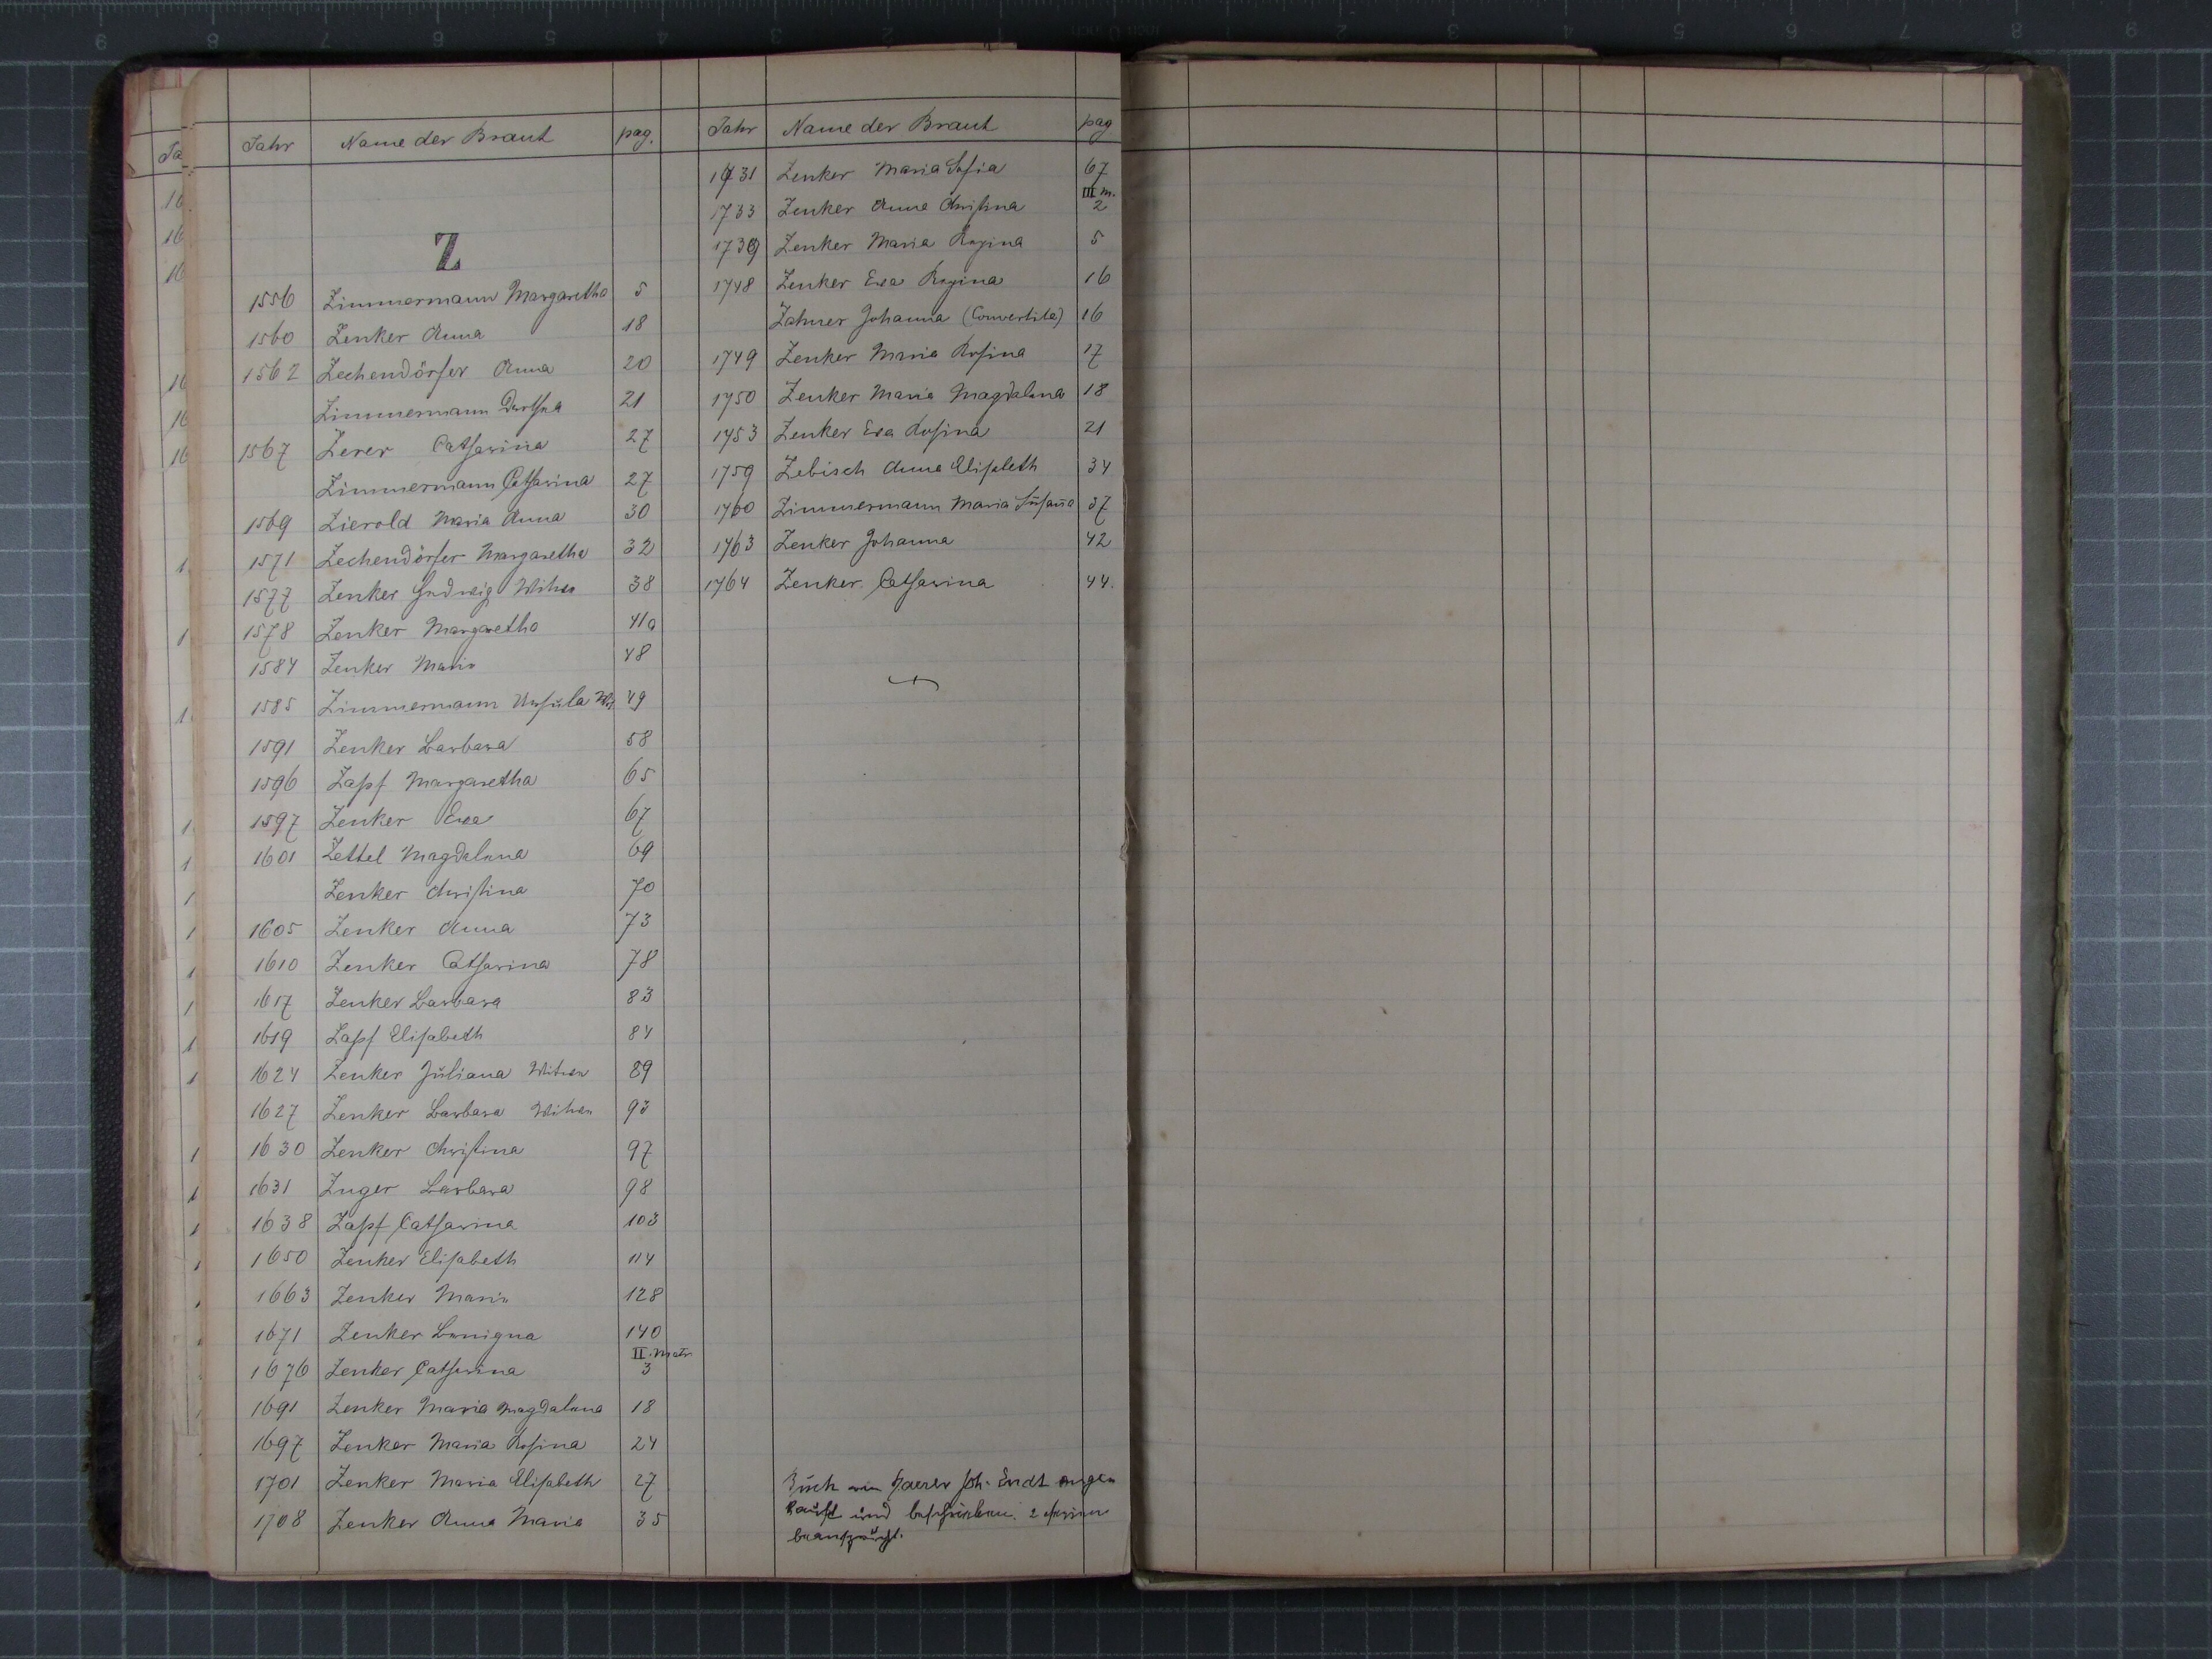 Jahr Name der Braut pag.
Z
1556 Zimmermann Margaretha 5
1560 Zenker Anna 18
1562 Zechendörfer Anna 20
Zimmermann Dorothea 21
1567 Zerer Catharina 27
Zimmermann Catharina 27
1569 Zierold Maria Anna 30
1571 Zechendörfer Margaretha 32
1577 Zenker Ludwig Witwe 38
1578 Zenker Margaretha 41a
1584 Zenker Maria 48
1585 Zimmermann Ursula Wit 49
1591 Zenker Barbara 58
1596 Zapf Margaretha 65
1597 Zenker Eva 67
1601 Zettel Magdalena 69
Zenker Christina 70
1605 Zenker Anna 73
1610 Zenker Catharina 78
1617 Zenker Barbara 83
1619 Zapf Elisabeth 84
1624 Zenker Juliana Witwe 89
1627 Zenker Barbara Witwe 93
1630 Zenker Christina 97
1631 Zuger Barbara 98
1638 Zapf Catharina 103
1650 Zenker Elisabeth 114
1663 Zenker Maria 128
1671 Zenker Benigna 140
II. Matr.
1676 Zenker Catharina 3
1691 Zenker Maria Magdalena 18
1697 Zenker Maria Rosina 24
1701 Zenker Maria Elisabeth 27
1708 Zenker Anna Maria 35
Jahr Name der Braut pag
1731 Zenker Maria Sofia 67
III m.
1733 Zenker Anna Christina 2
1739 Zenker Maria Regina 5
1748 Zenker Eva Regina 16
Zahner Johanna (Convertita) 16
1749 Zenker Maria Rosina 17
1750 Zenker Maria Magdalena 18
1753 Zenker Eva Rosina 21
1759 Zebisch Anna Elisabeth 34
1760 Zimmermann Maria Susaña 37
1763 Zenker Johanna 42
1764 Zenker Catharina 44.
Buch von Joh. Endt angekauft
und beschrieben. 2
beansprucht.